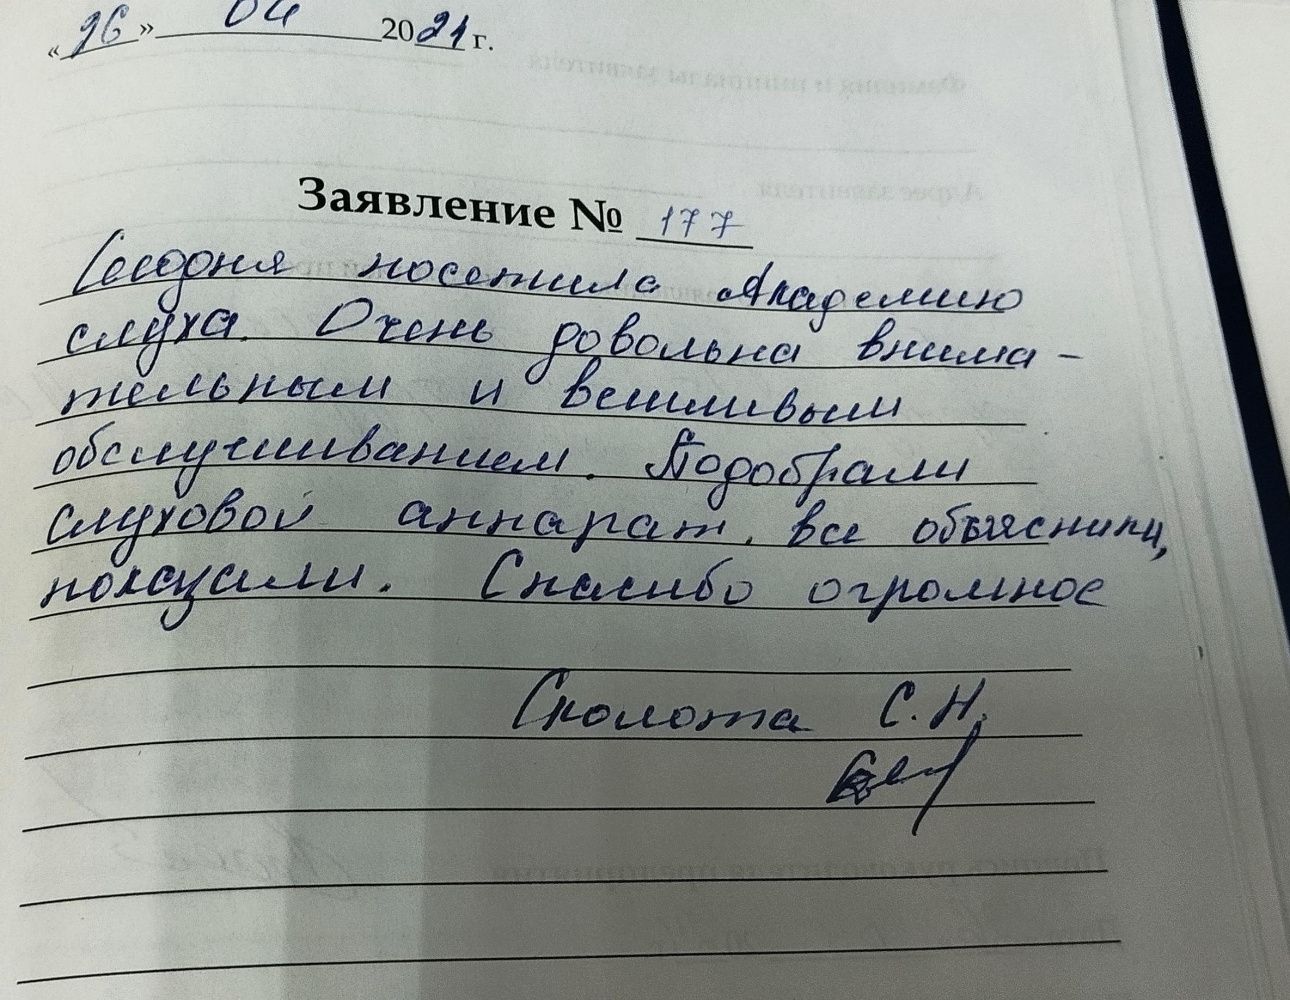 «26» 04 2021 г.
Заявление № 177
Сегодня посетила Академию
слуха. Очень довольна внима-
тельным и вежливым
обслуживанием. Подобрали
слуховой аппарат, все объяснили,
показали. Спасибо огромное
Сколота С.Н.